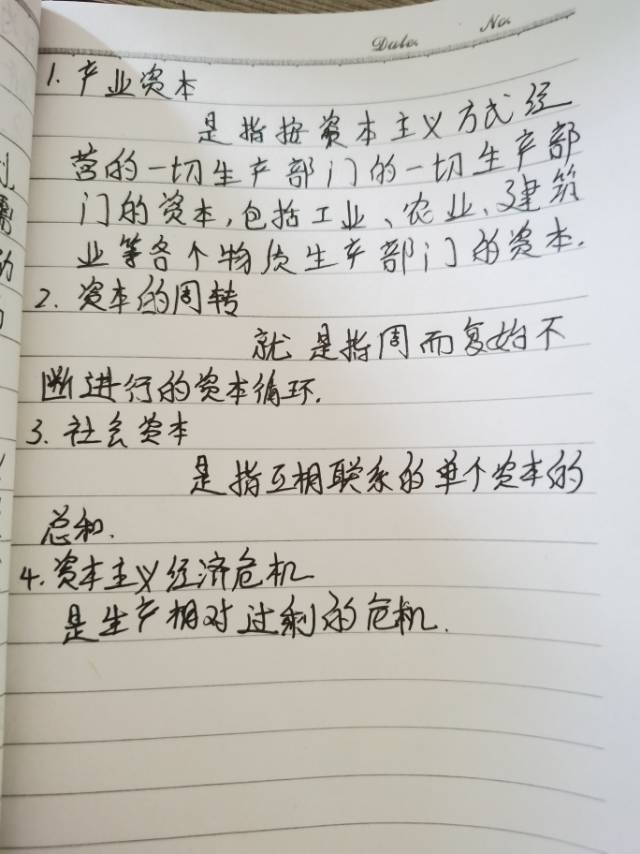 Date No
1. 产业资本
是指按资本主义方式经
营的一切生产部门的一切生产部
门的资本,包括工业、农业、建筑
业等各个物质生产部门的资本.
2. 资本的周转
就是指周而复始不
断进行的资本循环.
3. 社会资本
是指互相联系的单个资本的
总和.
4. 资本主义经济危机
是生产相对过剩的危机.